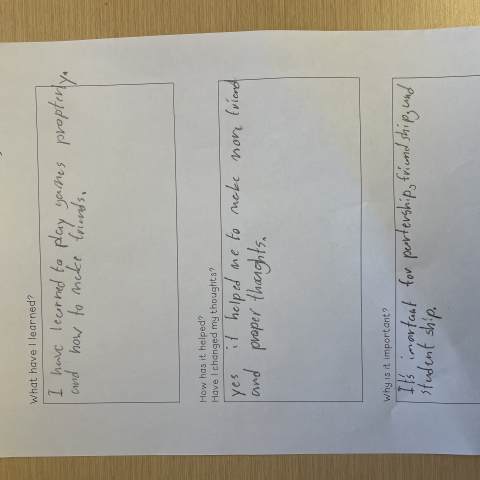 What have I learned?
I have learned to play games propterly.
and how to make friends.
How has it helped?
Have I changed my thoughts?
yes it helped me to make more friend
and proper thoughts.
Why is it important?
It's imortant for partership, friendship, and
student ship.